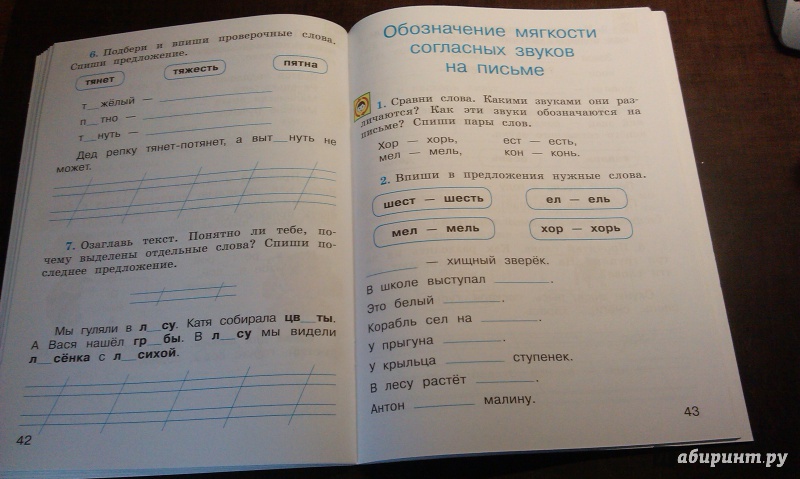 6. Подбери и впиши проверочные слова.
Спиши предложение.
тянет тяжесть пятна
т__жёлый —
п__тно —
т__нуть —
Дед репку тянет-потянет, а выт__нуть не
может.
7. Озаглавь текст. Понятно ли тебе, по-
чему выделены отдельные слова? Спиши по-
следнее предложение.
Мы гуляли в л__су. Катя собирала цв__ты.
А Вася нашёл гр__бы. В л__су мы видели
л__сёнка с л__сихой.
42
Обозначение мягкости
согласных звуков
на письме
1. Сравни слова. Какими звуками они раз-
личаются? Как эти звуки обозначаются на
письме? Спиши пары слов.
Хор — хорь, ест — есть,
мел — мель, кон — конь.
2. Впиши в предложения нужные слова.
шест — шесть ел — ель
мел — мель хор — хорь
______ — хищный зверёк.
В школе выступал ______.
Это белый ______.
Корабль сел на ______.
У прыгуна ______.
У крыльца ______ ступенек.
В лесу растёт ______.
Антон ______ малину.
43
абиринт.ру